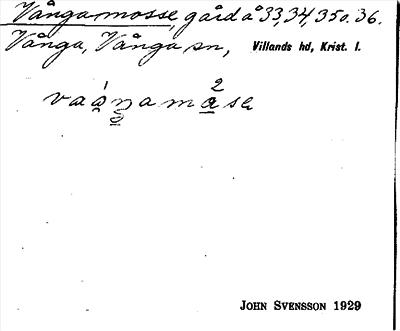 Vångamosse, gård å 33, 34, 35 o. 36.
Vånga, Vånga sn, Villands hd, Krist. l.
JOHN SVENSSON 1929